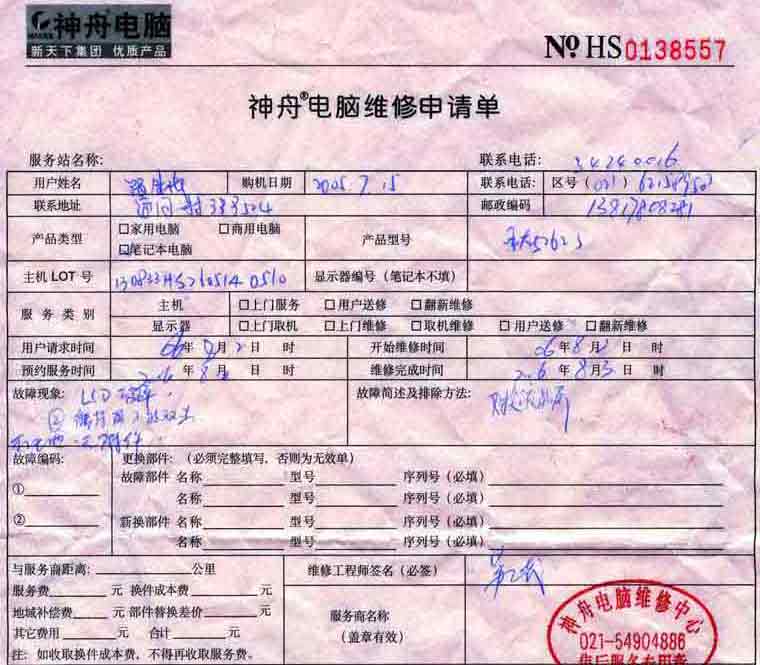 神舟电脑
新天下集团 优质产品
№ HS0138557
神舟®电脑维修申请单
服务站名称: 联系电话: 34240016
用户姓名 购机日期 2005.7.15 联系电话: 区号(021)
联系地址 邮政编码 13817808281
产品类型 □家用电脑 □商用电脑 □笔记本电脑 产品型号
主机 LOT 号 显示器编号(笔记本不填)
服务类别 主机 □上门服务 □用户送修 □翻新维修
显示器 □上门取机 □上门维修 □取机维修 □用户送修 □翻新维修
用户请求时间 06年8月2日 时 开始维修时间 06年8月2日 时
预约服务时间 年8月 日 时 维修完成时间 2006年8月3日 时
故障现象: LCD 故障简述及排除方法:
②
故障编码: 更换部件:(必须完整填写,否则为无效单)
故障部件 名称 型号 序列号(必填)
① 名称 型号 序列号(必填)
② 新换部件 名称 型号 序列号(必填)
名称 型号 序列号(必填)
与服务商距离: 公里 维修工程师签名(必签)
服务费 元 换件成本费 元
地域补偿费 元 部件替换差价 元 服务商名称
其它费用 元 合计 元 (盖章有效)
注:如收取换件成本费,不得再收取服务费。
神舟电脑维修中心
021-54904886
售后服务专用章